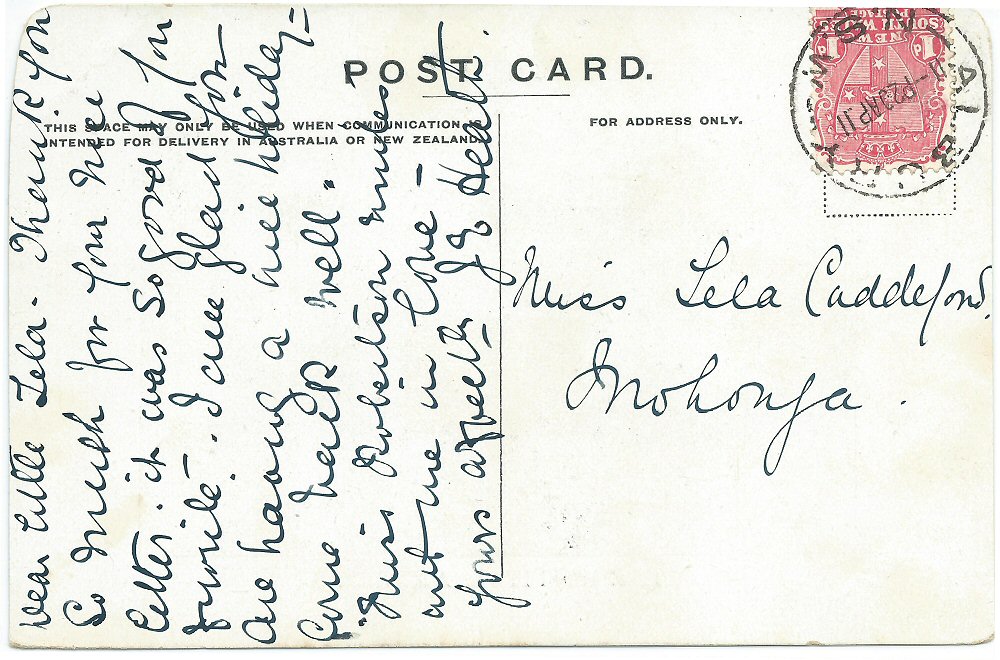 POST CARD.
THIS SPACE MAY ONLY BE USED WHEN COMMUNICATION IS
INTENDED FOR DELIVERY IN AUSTRALIA OR NEW ZEALAND.
FOR ADDRESS ONLY.
NEW
SOUTH WALES
1D 1D
ALBURY
N.S.W
23 AP 11
Dear little Lela - Thank you
so much for your nice
letter. it was so good of you
to write - I am glad you
are having a nice holiday -
Come back well.
Miss Robertson
in love -
yours affectly
Miss Lela Caddeford.